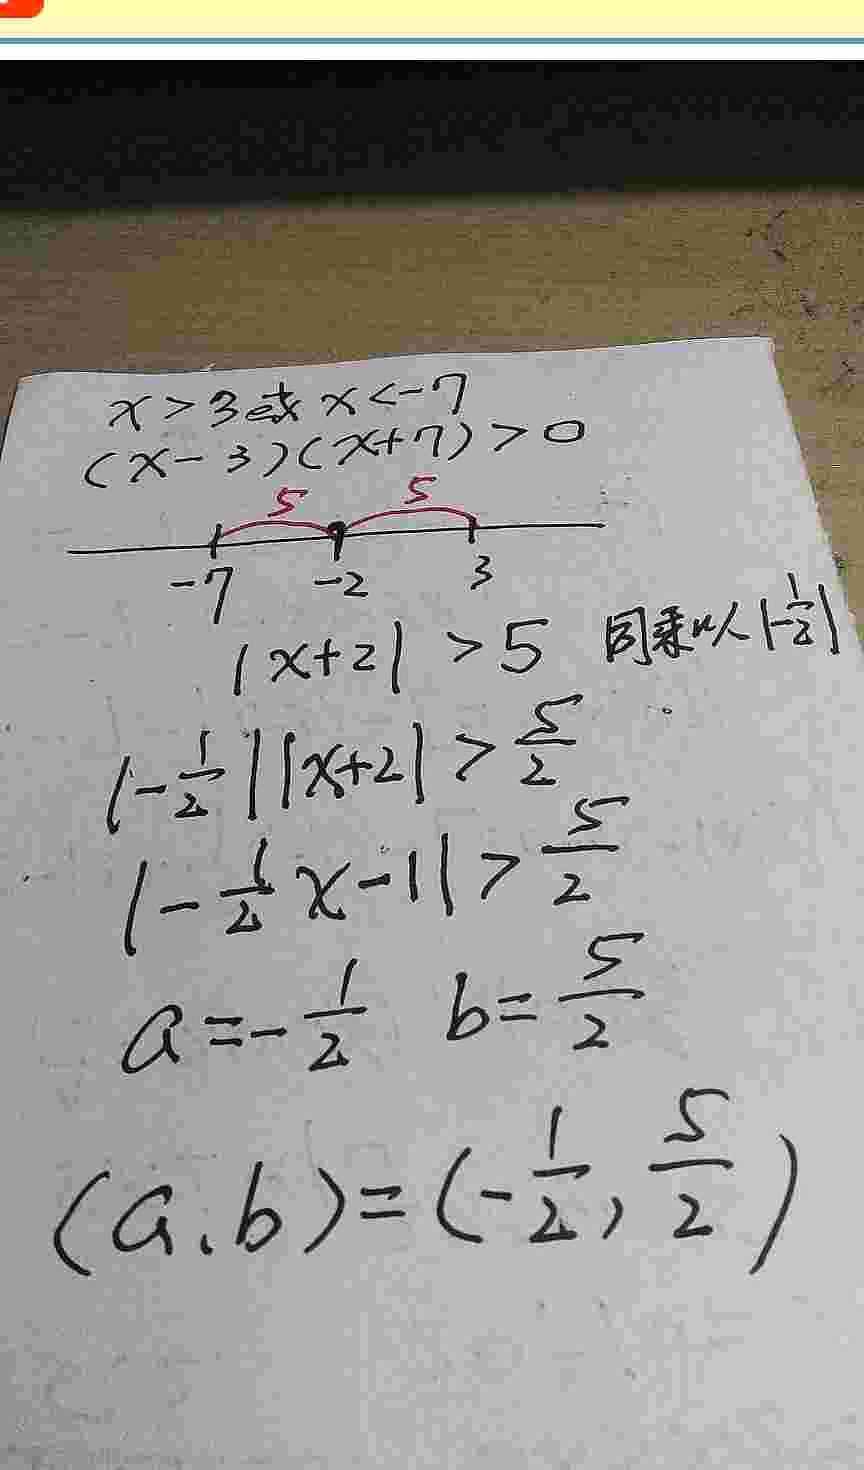 x>3或x<-7
(x-3)(x+7)>0
5 5
-7 -2 3
|x+2|>5 同乘以|-1/2|
|-1/2||x+2|>5/2
|-1/2x-1|>5/2
a=-1/2 b=5/2
(a.b)=(-1/2,5/2)